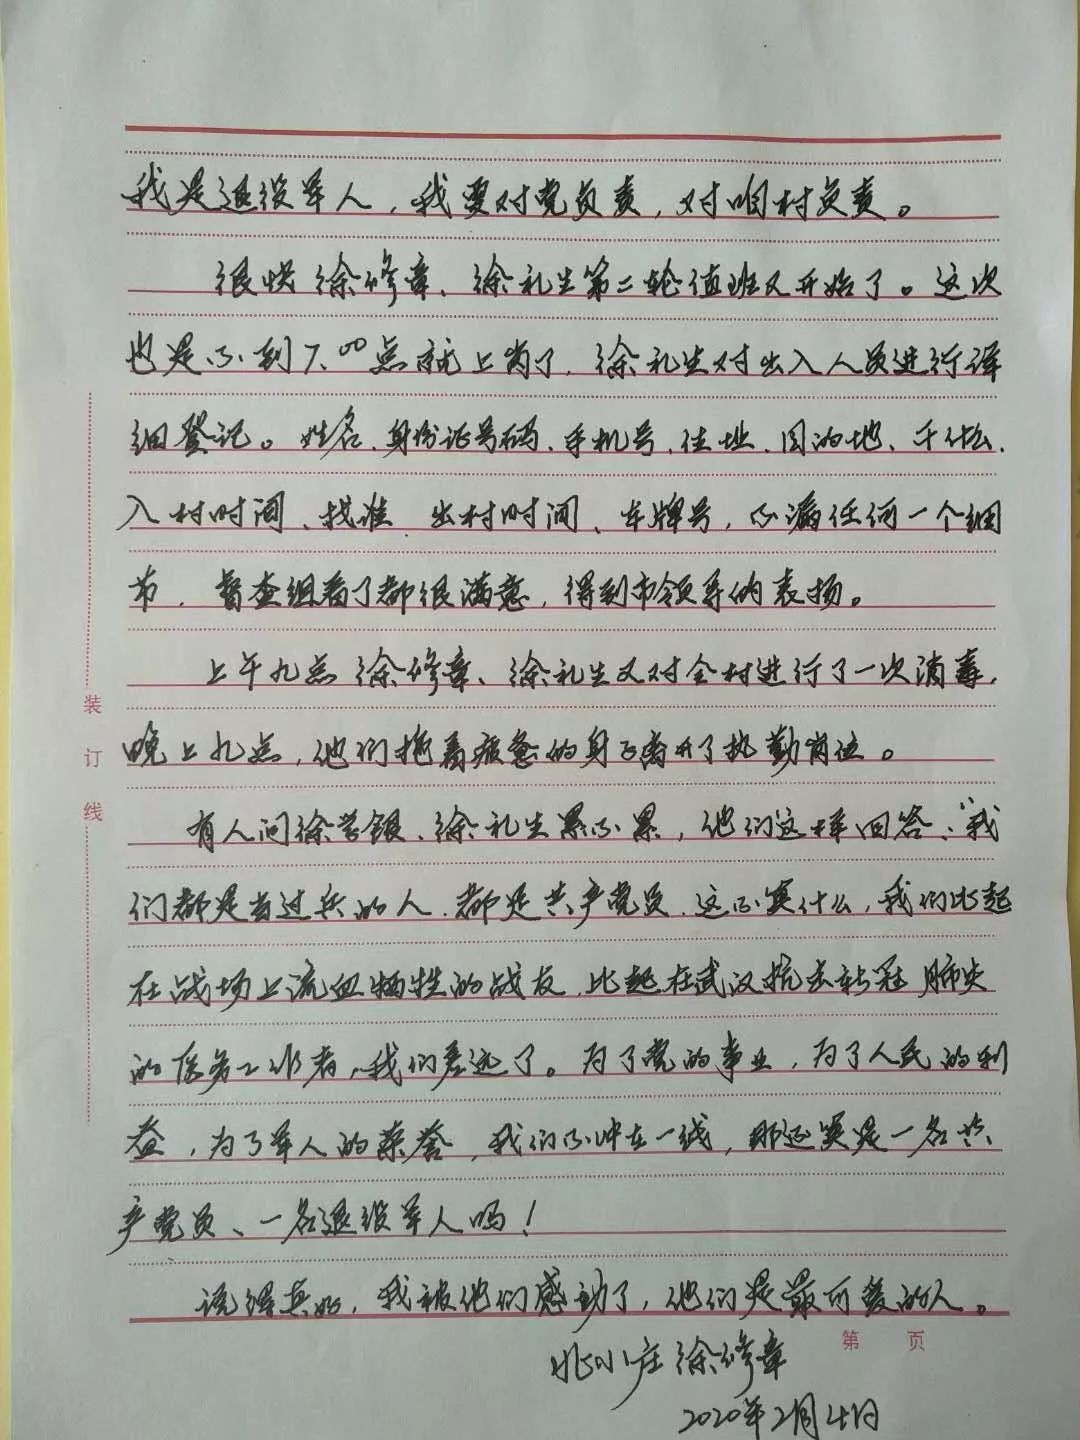 我是退役军人，我要对党负责，对咱村负责。
很快徐修章、徐礼生第二轮值班又开始了。这次
也是不到7.00点就上岗了，徐礼生对出入人员进行详
细登记。姓名、身份证号码、手机号、住址、目的地、干什么、
入村时间、找谁、出村时间、车牌号，不漏任何一个细
节，督查组看了都很满意，得到市领导的表扬。
上午九点徐修章、徐礼生又对全村进行了一次消毒，
晚上九点，他们拖着疲惫的身子离开了执勤岗位。
有人问徐学银、徐礼生累不累，他们这样回答：“我
们都是当过兵的人，都是共产党员，这不算什么，我们比起
在战场上流血牺牲的战友，比起在武汉抗击新冠肺炎
的医务工作者，我们差远了。为了党的事业，为了人民的利
益，为了军人的荣誉，我们不冲在一线，那还算是一名共
产党员、一名退役军人吗！
说得真好，我被他们感动了，他们是最可爱的人。
小庄 徐修章
2020年2月4日
装订线
第 页